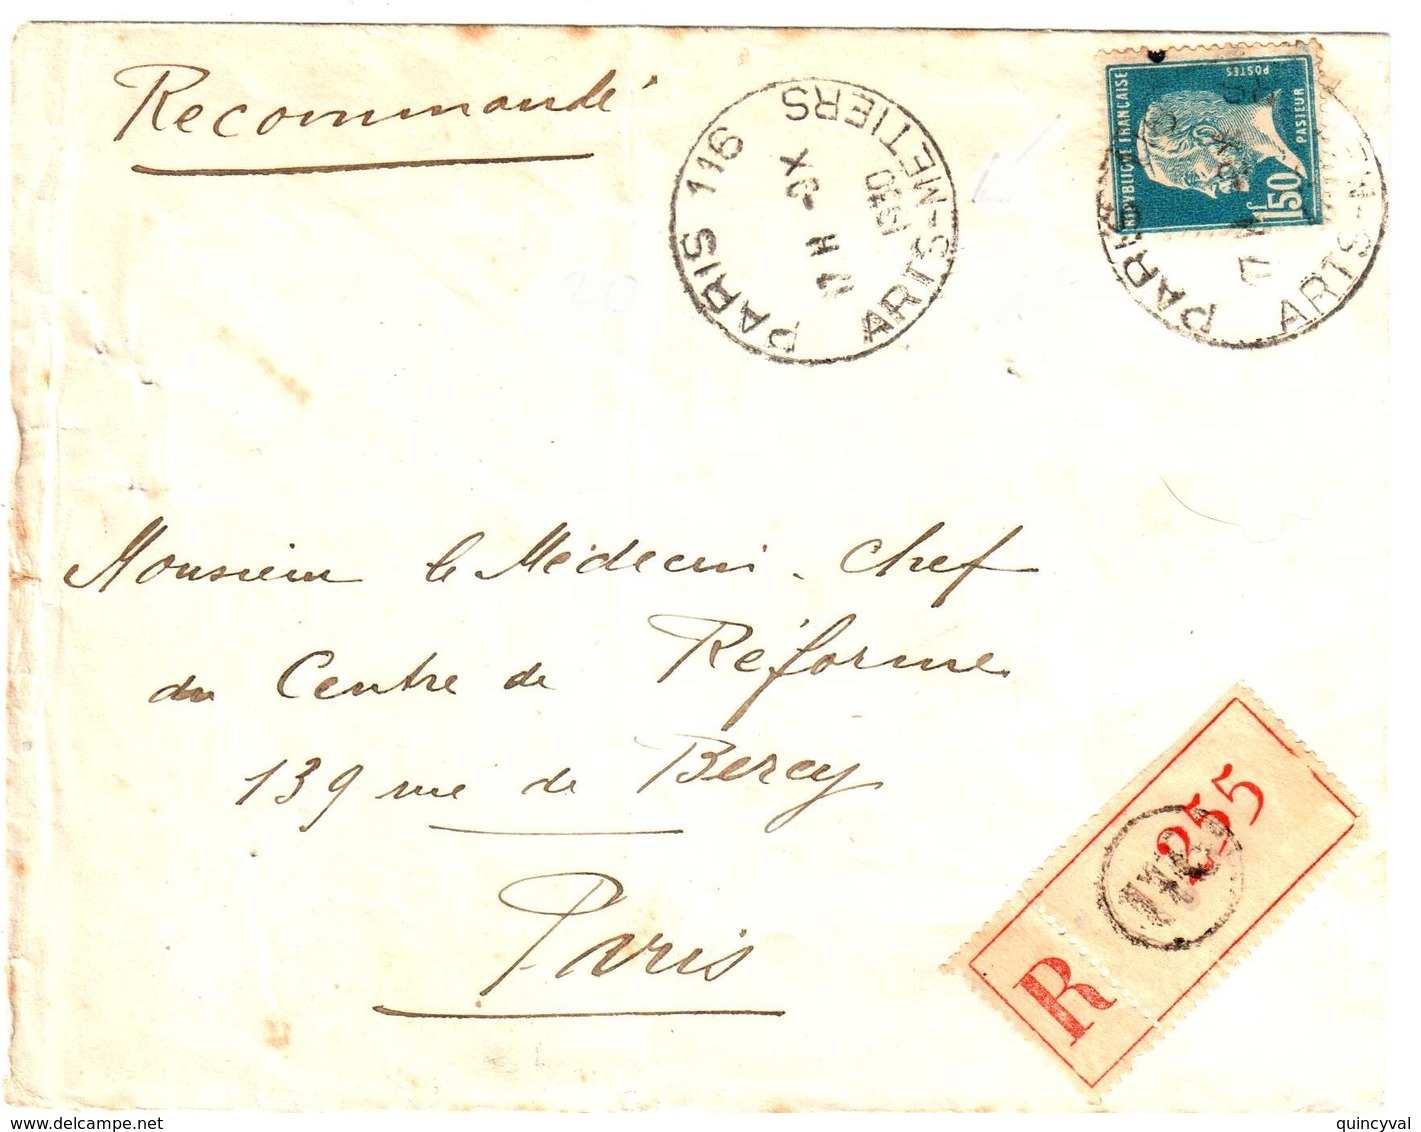 Recommandé
PARIS 116
ARTS-MÉTIERS
17 H
1930
POSTES
RÉPUBLIQUE FRANÇAISE
PASTEUR
1f50
PARIS
17 H
ARTS-MÉTIERS
Monsieur le Médecin-Chef
du Centre de Réforme
139 rue de Bercy
Paris
R
255
www.delcampe.net
quincyval